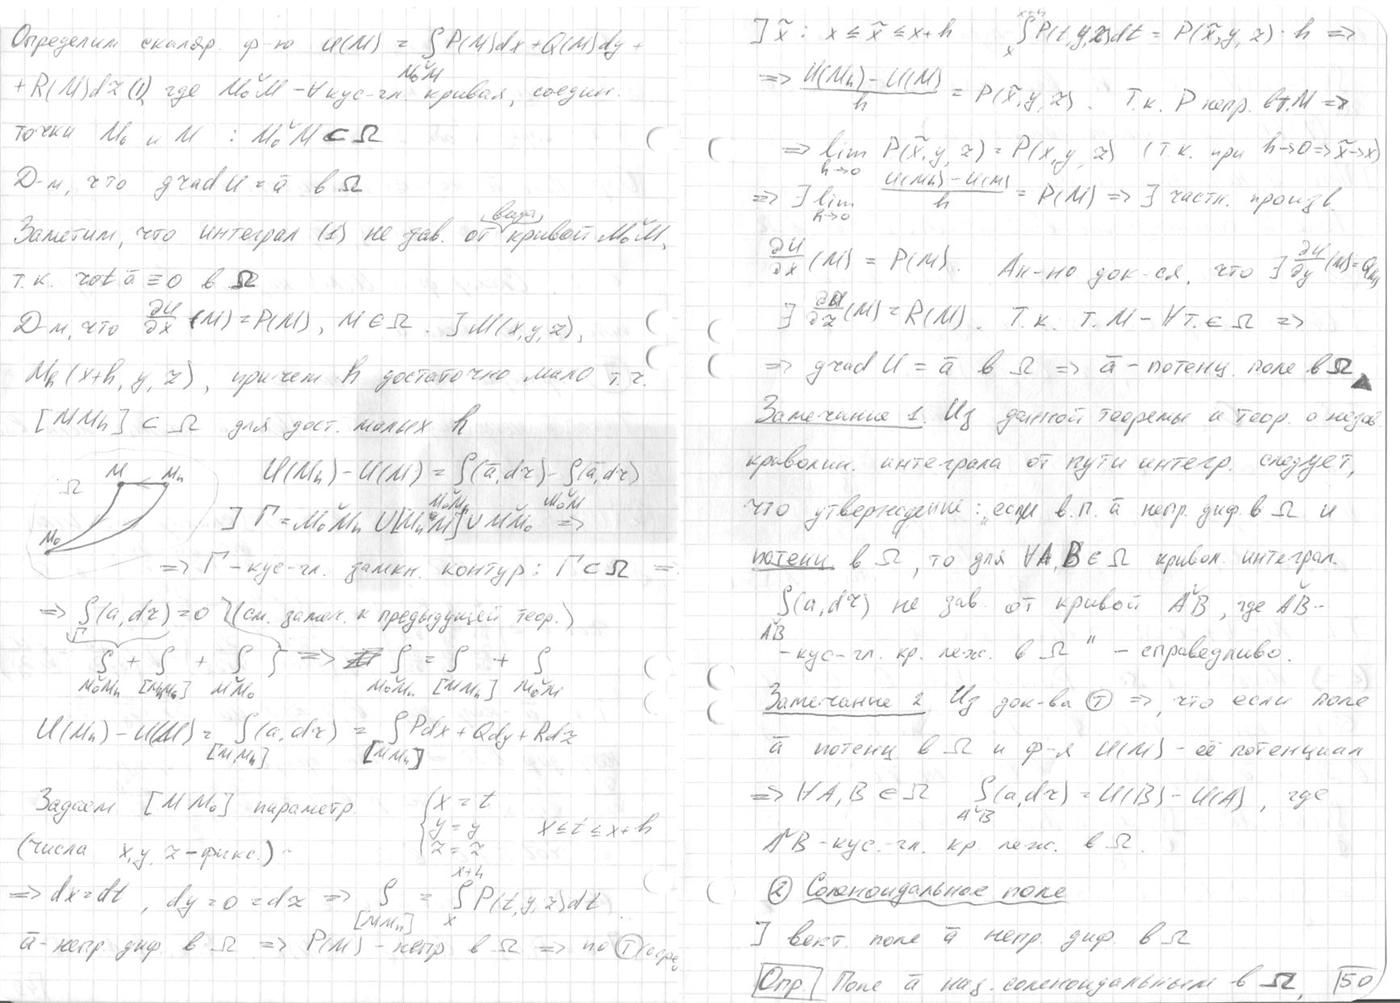 Определим скаляр. ф-ю U(M) = ∫P(M)dx+Q(M)dy+
M₀͝M
+R(M)dz (1), где M₀͝M - ∀ кус-гл. кривая, соедин.
точки M₀ и M : M₀͝M ⊂ Ω
Д-м, что grad U = ā в Ω
вида
Заметим, что интеграл (1) не зав. от кривой M₀͝M,
т.к. rot ā ≡ 0 в Ω
Д-м, что ∂U/∂x (M) = P(M), M ∈ Ω. ] M(x,y,z),
Mh (x+h, y, z), причем h достаточно мало т.ч.
[MMh] ⊂ Ω для дост. малых h
Ω M Mh M₀
U(Mh) - U(M) = ∫(ā,dr) - ∫(ā,dr)
M₀͝Mh M₀͝M
] Γ = M₀͝Mh ∪ [MhM] ∪ M͝M₀ =>
=> Γ - кус-гл. замкн. контур : Γ ⊂ Ω =>
=> ∫(a,dr) = 0 (см. замеч. к предыдущей теор.)
Γ
∫ + ∫ + ∫ } => ∫ = ∫ + ∫
M₀͝Mh [MhM] M͝M₀ M₀͝Mh [MMh] M₀͝M
U(Mh) - U(M) = ∫(a,dr) = ∫Pdx+Qdy+Rdz
[MMh] [MMh]
Задаем [MM₀] параметр. { x = t
y = y x ≤ t ≤ x+h
z = z
(числа x, y, z - фикс.)
=> dx = dt, dy = 0 = dz => ∫ = ∫ₓˣ⁺ʰ P(t,y,z)dt
[MMh]
ā - непр. диф. в Ω => P(M) - непр в Ω => по Ⓣ о сред
∃ x̃ : x ≤ x̃ ≤ x+h ∫ₓˣ⁺ʰ P(t,y,z)dt = P(x̃,y,z)·h =>
=> (U(Mh) - U(M))/h = P(x̃,y,z). Т.к. P непр. в т.M =>
=> lim P(x̃,y,z) = P(x,y,z) (т.к. при h→0 => x̃→x)
h→0
=> ∃ lim (U(Mh) - U(M))/h = P(M) => ∃ частн. произв.
h→0
∂U/∂x (M) = P(M). Ан-но док-ся, что ∃ ∂U/∂y (M) = Q(M)
∃ ∂U/∂z (M) = R(M). Т.к. т. M - ∀ т. ∈ Ω =>
=> grad U = ā в Ω => ā - потенц. поле в Ω ▲
Замечание 1. Из данной теоремы и теор. о незав
криволин. интеграла от пути интегр. следует,
что утверждение: „если в.п. ā непр. диф. в Ω и
потенц. в Ω, то для ∀A,B ∈ Ω кривол. интеграл
∫(a,dr) не зав. от кривой A͝B, где A͝B -
A͝B
- кус-гл. кр. леж. в Ω" - справедливо.
Замечание 2 Из док-ва Ⓣ =>, что если поле
ā потенц в Ω и ф-я U(M) - её потенциал
=> ∀A,B ∈ Ω ∫(a,dr) = U(B) - U(A), где
A͝B
A͝B - кус.-гл. кр. леж. в Ω.
② Соленоидальное поле
] вект. поле ā непр. диф. в Ω
Опр. Поле ā наз. соленоидальным в Ω, 50